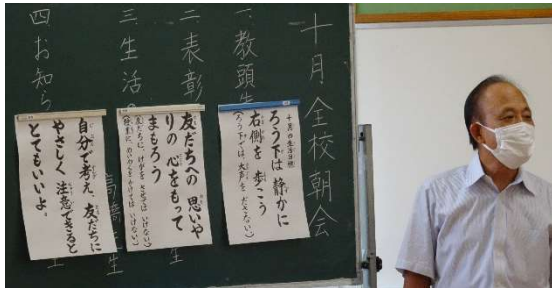 十月全校朝会
一、教頭先
二、表彰
生
三、生活の
高橋先生
四お知ら
十月の生活目標
ろう下は 静かに
右側を 歩こう
(ろう下では、大声を ださない)
友だちへの 思いや
りの 心をもって
まもろう
自分で考え 友だちに
やさしく 注意できると
とてもいいよ。